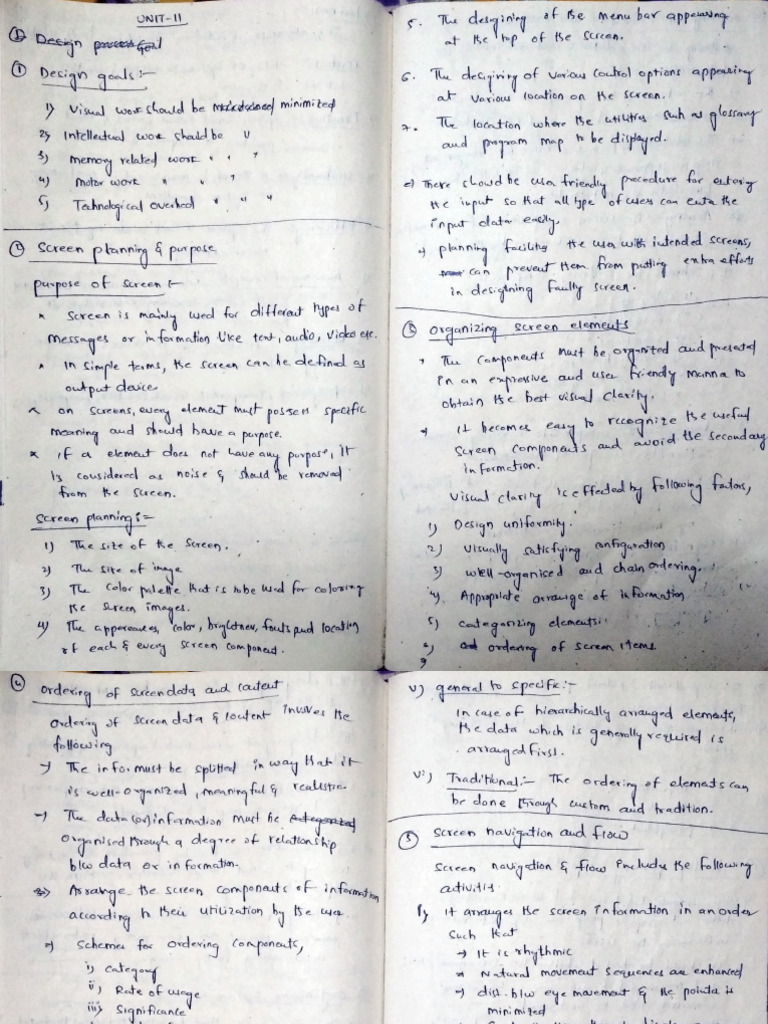 UNIT-II
① Design goal
① Design goals:-
1) Visual work should be minimized
2) Intellectual work should be "
3) memory related work " " "
4) Motor work " " "
5) Technological overhead " " "
② Screen planning & purpose
purpose of screen:-
* Screen is mainly used for different types of
messages or information like text, audio, video etc.
* In simple terms, the screen can be defined as
output device
* on screens, every element must possess specific
meaning and should have a purpose.
* if a element does not have any purpose, it
is considered as noise & should be removed
from the screen.
Screen planning:-
1) The size of the screen.
2) The size of image
3) The color palette that is to be used for coloring
the screen images.
4) The apperances, color, brightness, fonts and location
of each & every screen component.
5. The desgining of the menu bar appearing
at the top of the screen.
6. The desgining of various control options appearing
at various location on the screen.
7. The location where the utilities such as glossary
and program map to be displayed.
→ There should be user friendly procedure for entering
the input so that all type of users can enter the
input data easily.
→ planning facilities the user with intended screens,
can prevent them from putting extra efforts
in desgining faulty screen.
③ organizing screen elements
* The components must be organized and presented
in an expressive and user friendly manner to
obtain the best visual clarity.
* it becomes easy to recognize the useful
screen components and avoid the secondary
information.
Visual clarity is effected by following factors,
1) Design uniformity.
2) Visually satisfying configuration
3) well-organised and chain ordering.
4) Appropriate arrange of information
5) categorizing elements:
6) ordering of screen items
④ ordering of screen data and content
ordering of screen data & content involves the
following
→ The info must be splitted in way that it
is well-organized, meaningful & realistic.
→ The data (or) information must be
organised through a degree of relationship
b/w data or information.
→ Arrange the screen components of information
according to their utilization by the user
→ Schemes for ordering components,
i) category
ii) Rate of usage
iii) Significance
v) general to specific:-
In case of hierarchically arranged elements,
the data which is generally required is
arranged first.
vi) Traditional:- The ordering of elements can
be done through custom and tradition.
⑤ screen navigation and flow
screen navigation & flow includes the following
activities.
1) it arranges the screen information, in an order
such that
→ It is rhythmic
→ Natural movement sequences are enhanced
→ dist. b/w eye movement & the pointer is
minimized